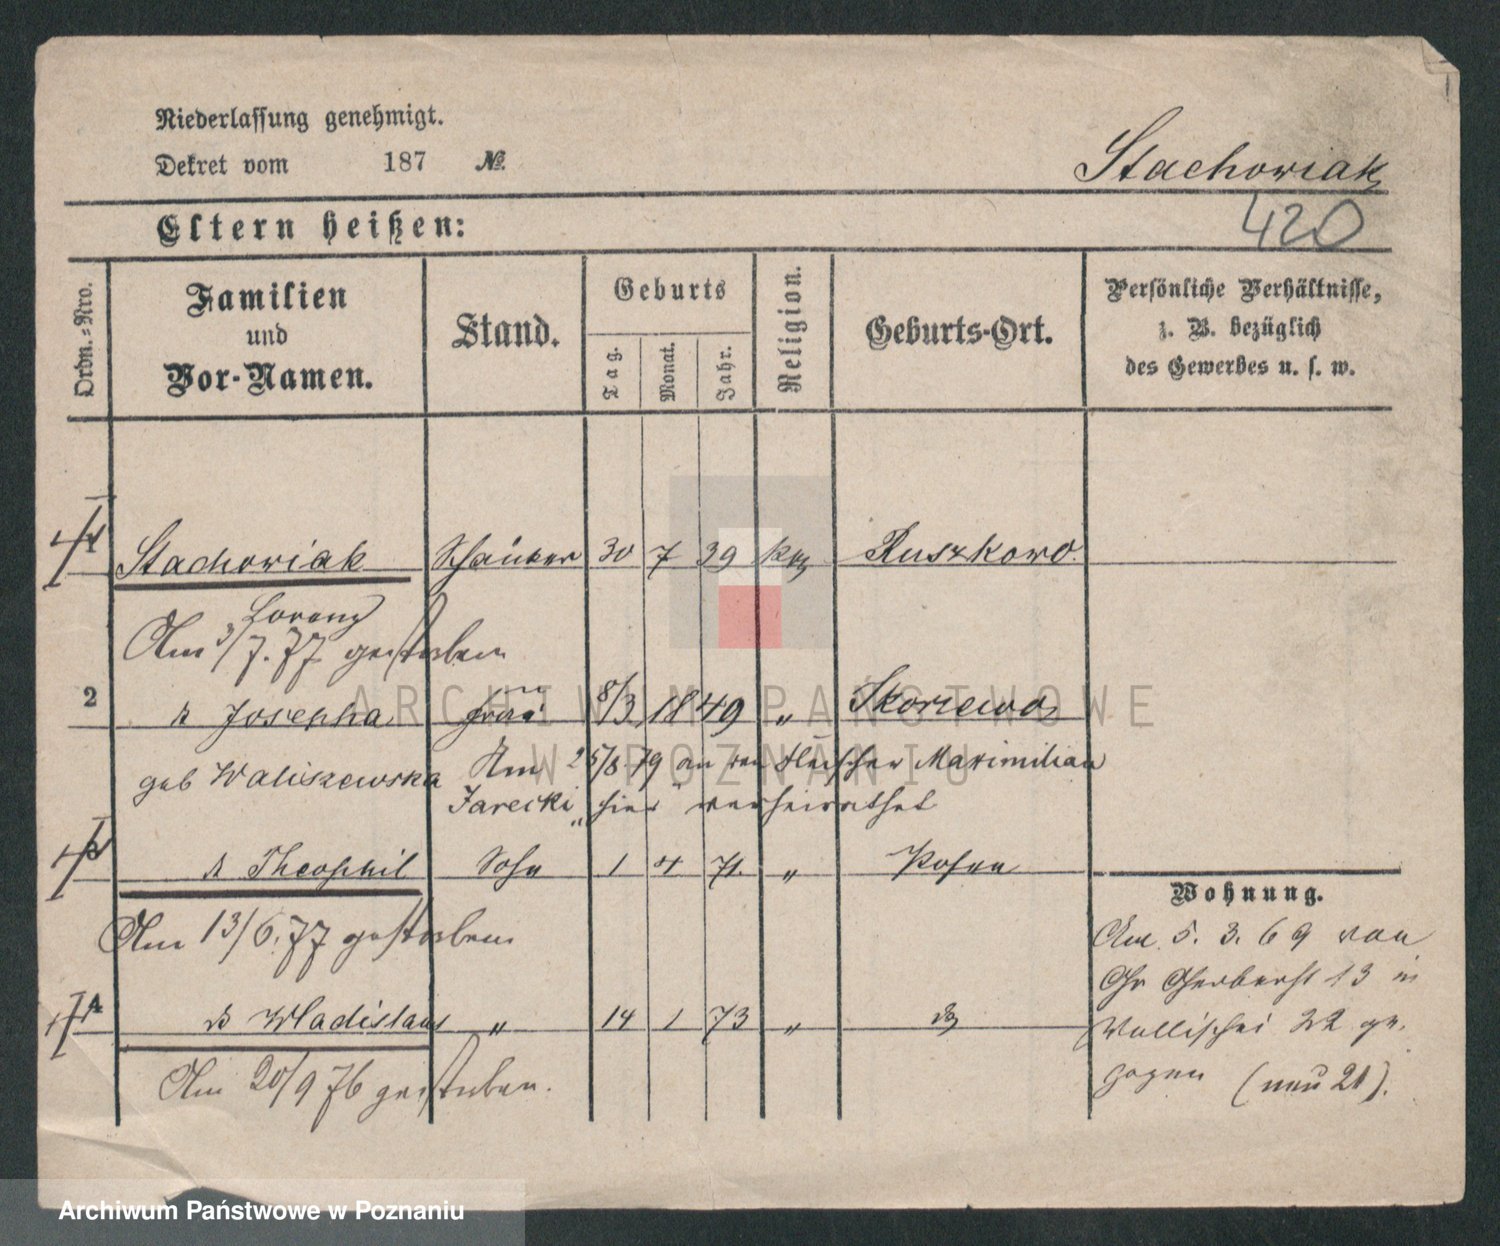 Niederlassung genehmigt.
Dekret vom 187 №
Stachowiak
420
Eltern heißen:
Ordn.-Nro.
Familien
und
Vor-Namen.
Stand.
Geburts
Tag.
Monat.
Jahr.
Religion.
Geburts-Ort.
Persönliche Verhältnisse,
z. B. bezüglich
des Gewerbes u. s. w.
1 Stachowiak 30 7 39 Ruszkowo
Lorenz
Am 3/7.77 gestorben
2 Josepha Frau 8/3 1849 "
geb Waliszewska Am 25/8 79 an den Fleischer Maximilian
Jarecki hier verheirathet
3 Theophil Sohn 1 4 71. " Posen
Am 13/6.77 gestorben
4 Wladislaus " 14 1 73 "
Am 20/9 76 gestorben.
Wohnung.
Am 5. 3. 69 von
Gr Gerberst 13 in
Wallischei 22 ge.
zogen (neu 21).
ARCHIWUM PAŃSTWOWE
W POZNANIU
Archiwum Państwowe w Poznaniu